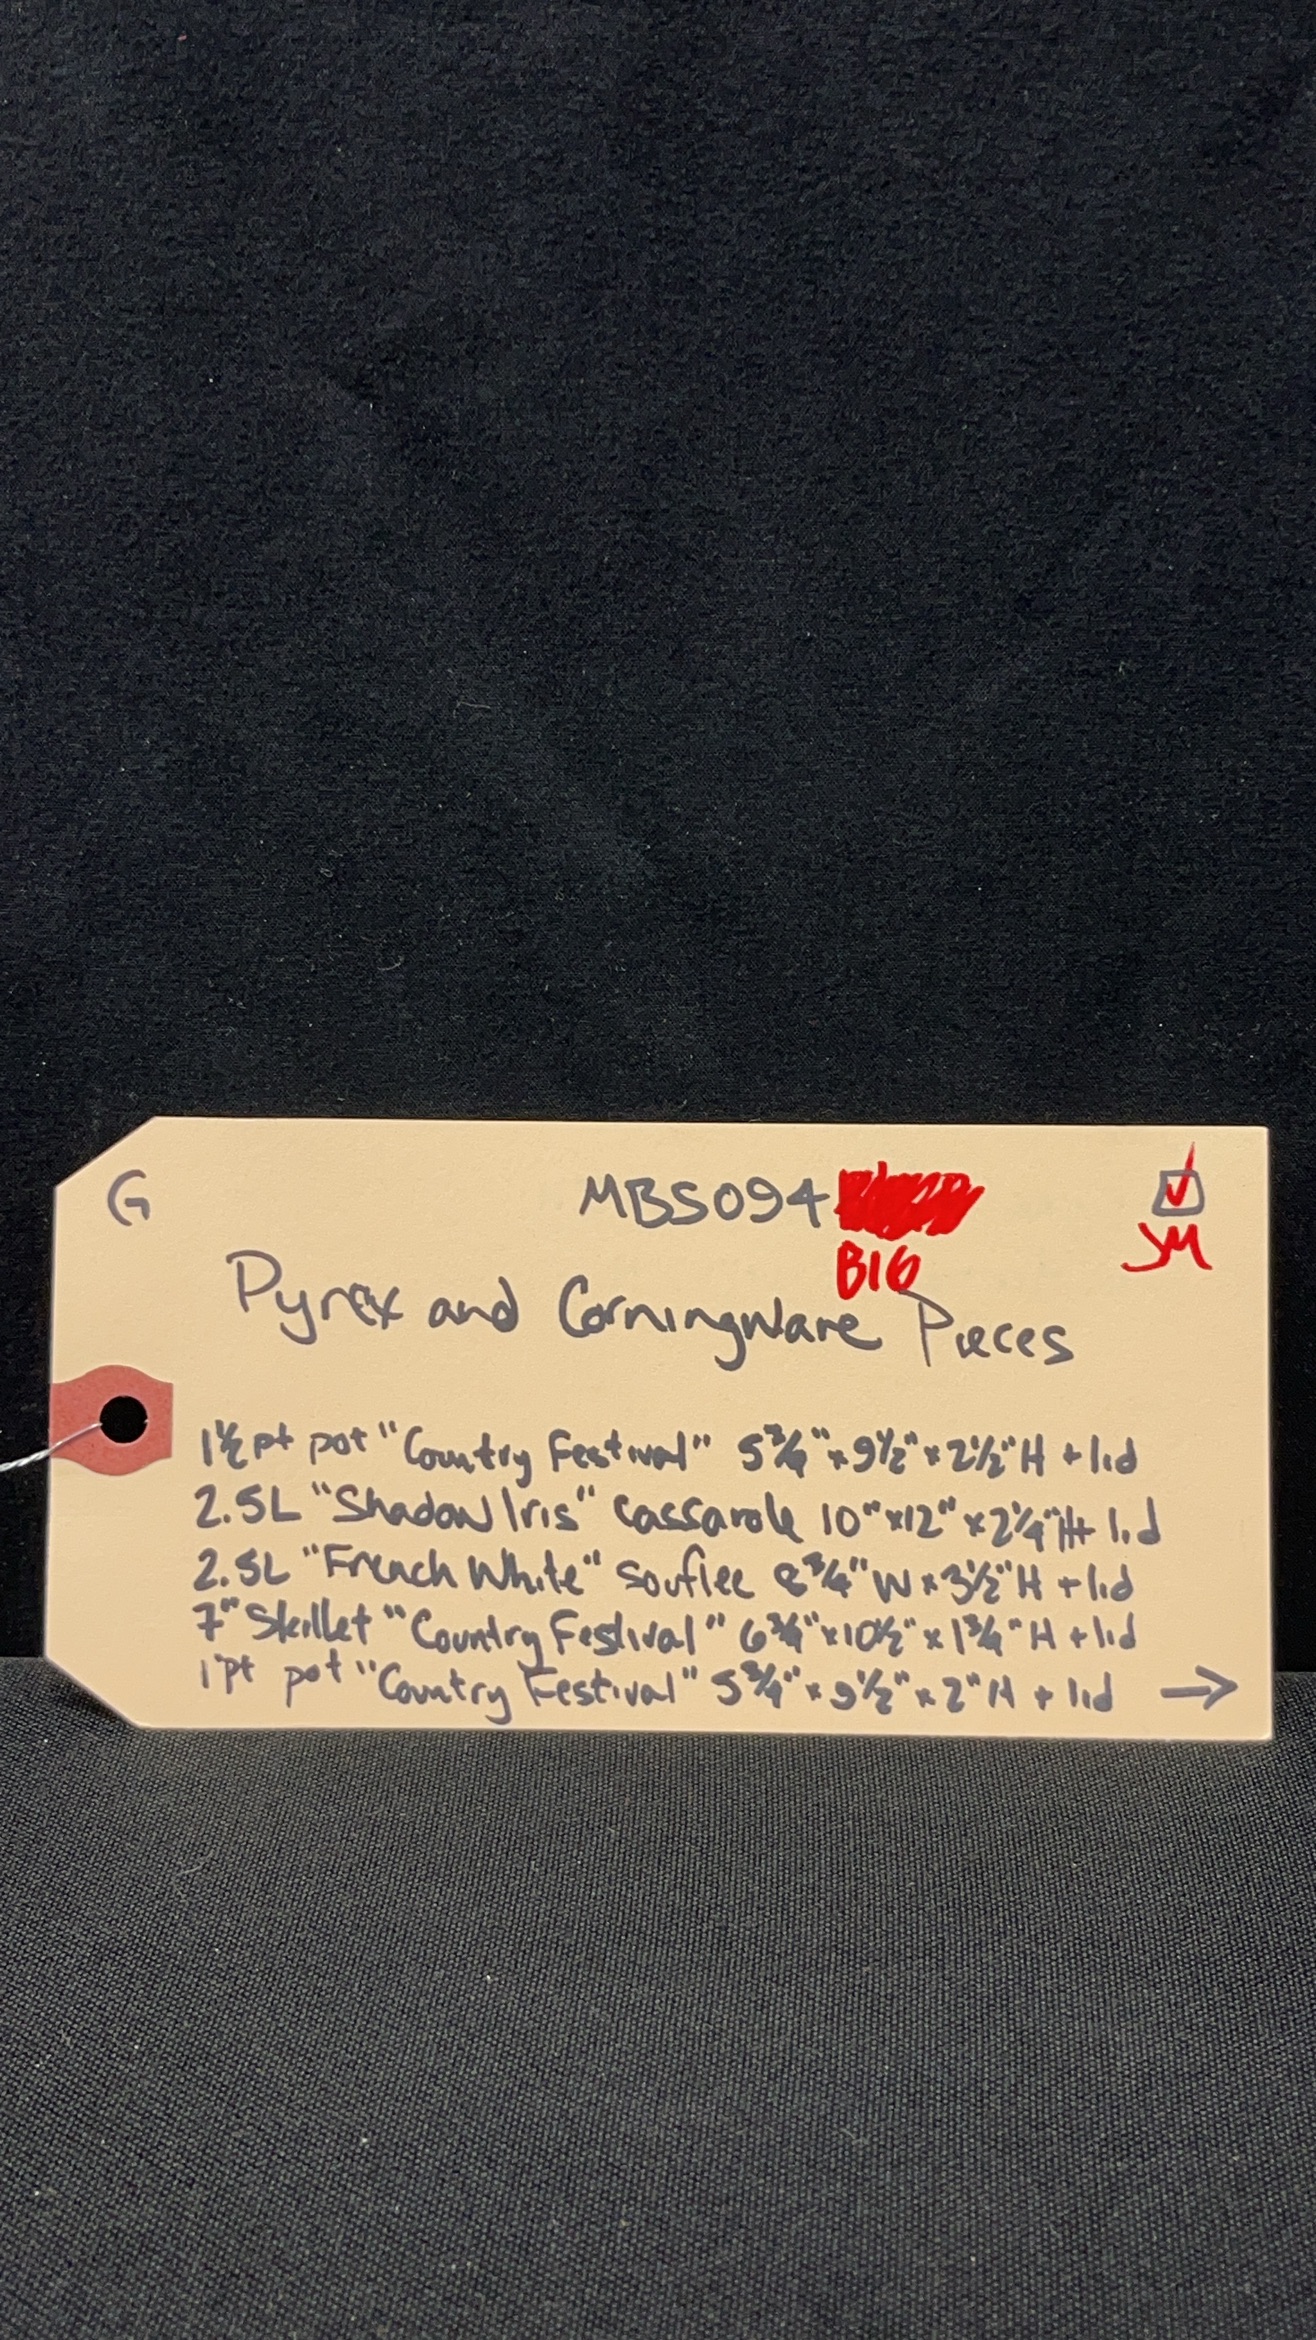 G
MBS094
BIG
JM
Pyrex and Corningware Pieces
1½ pt pot "Country Festival" 5¾" x 9½" x 2½" H + lid
2.5L "Shadow Iris" Cassarole 10" x 12" x 2¼" H + lid
2.5L "French White" souflee 8¾" W x 3½" H + lid
7" Skillet "Country Festival" 6¾" x 10½" x 1¾" H + lid
1 pt pot "Country Festival" 5¾" x 9½" x 2" H + lid →